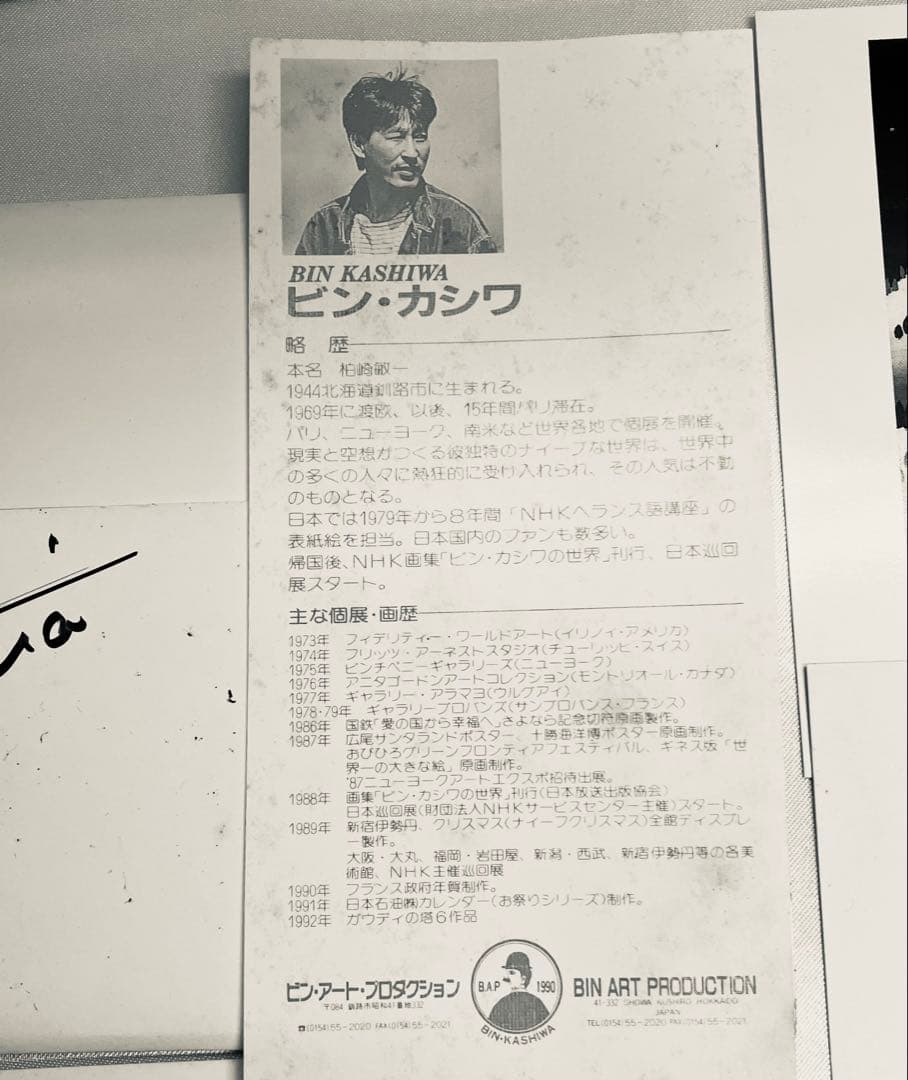 BIN KASHIWA
ビン・カシワ
略 歴
本名 柏崎敏一
1944北海道釧路市に生まれる。
1969年に渡欧、以後、15年間パリ滞在。
パリ、ニューヨーク、南米など世界各地で個展を開催。
現実と空想がつくる彼独特のナイーブな世界は、世界中
の多くの人々に熱狂的に受け入れられ、その人気は不動
のものとなる。
日本では1979年から8年間「NHKフランス語講座」の
表紙絵を担当。日本国内のファンも数多い。
帰国後、NHK画集「ビン・カシワの世界」刊行、日本巡回
展スタート。
主な個展・画歴
1973年 フィデリティー・ワールドアート(イリノイ・アメリカ)
1974年 フリッツ・アーネストスタジオ(チューリッヒ・スイス)
1975年 ピンチペニーギャラリーズ(ニューヨーク)
1976年 アニタゴードンアートコレクション(モントリオール・カナダ)
1977年 ギャラリー・アラマヨ(ウルグアイ)
1978・79年 ギャラリープロバンス(サンプロバンス・フランス)
1986年 国鉄「愛の国から幸福へ」さよなら記念切符原画製作。
1987年 広尾サンタランドポスター、十勝海洋博ポスター原画制作。
おびひろグリーンフロンティアフェスティバル、ギネス版「世
界一の大きな絵」原画制作。
'87ニューヨークアートエクスポ招待出展。
1988年 画集「ビン・カシワの世界」刊行(日本放送出版協会)
日本巡回展(財団法人NHKサービスセンター主催)スタート。
1989年 新宿伊勢丹、クリスマス(ナイーフクリスマス)全館ディスプレ
ー製作。
大阪・大丸、福岡・岩田屋、新潟・西武、新宿伊勢丹等の各美
術館、NHK主催巡回展
1990年 フランス政府年賀制作。
1991年 日本石油㈱カレンダー(お祭りシリーズ)制作。
1992年 ガウディの塔6作品
ビン・アート・プロダクション
〒084 釧路市昭和41番地332
☎(0154)55-2020 FAX(0154)55-2021
B.A.P 1990
BIN・KASHIWA
BIN ART PRODUCTION
41-332 SHOWA KUSHIRO HOKKAIDO
JAPAN
TEL(0154)55-2020 FAX(0154)55-2021